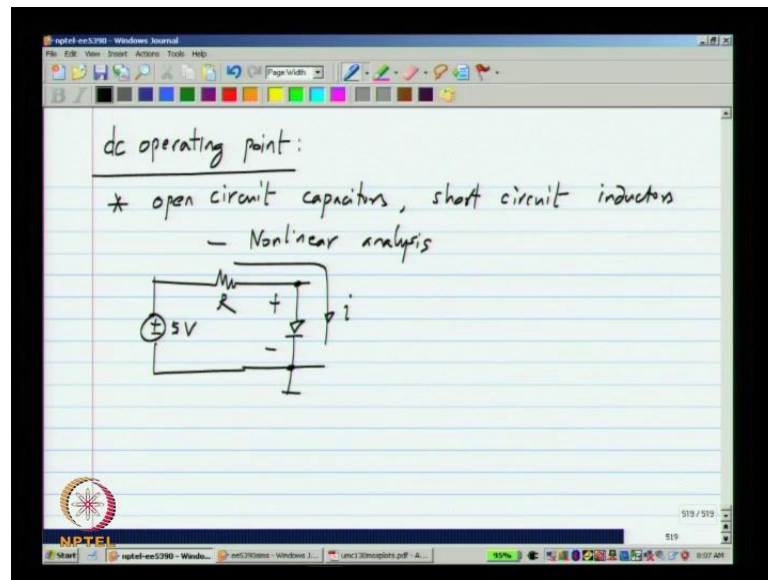 nptel-ee5390 - Windows Journal
File Edit View Insert Actions Tools Help
Page Width
B I
dc operating point:
* open circuit capacitors, short circuit inductors
- Nonlinear analysis
R
+
i
± 5V
-
519/519
519
NPTEL
Start
nptel-ee5390 - Windo...
ee5390sims - Windows J...
umc130mosplots.pdf - A...
95%
8:07 AM